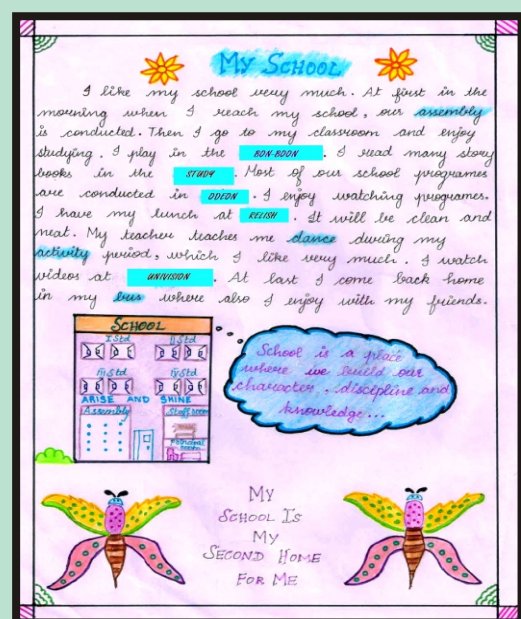 MY SCHOOL
I like my school very much. At first in the
morning when I reach my school, our assembly
is conducted. Then I go to my classroom and enjoy
studying. I play in the BON-BOON. I read many story
books in the STUDY. Most of our school programes
are conducted in ODEON. I enjoy watching programes.
I have my lunch at RELISH. It will be clean and
neat. My teacher teaches me dance during my
activity period, which I like very much. I watch
videos at UNIVISION. At last I come back home
in my bus where also I enjoy with my friends.
SCHOOL
I Std II Std
III Std IV Std
ARISE AND SHINE
Assembly Staff room
Principal room
School is a place
where we build our
character...discipline and
knowledge...
MY
SCHOOL IS
MY
SECOND HOME
FOR ME